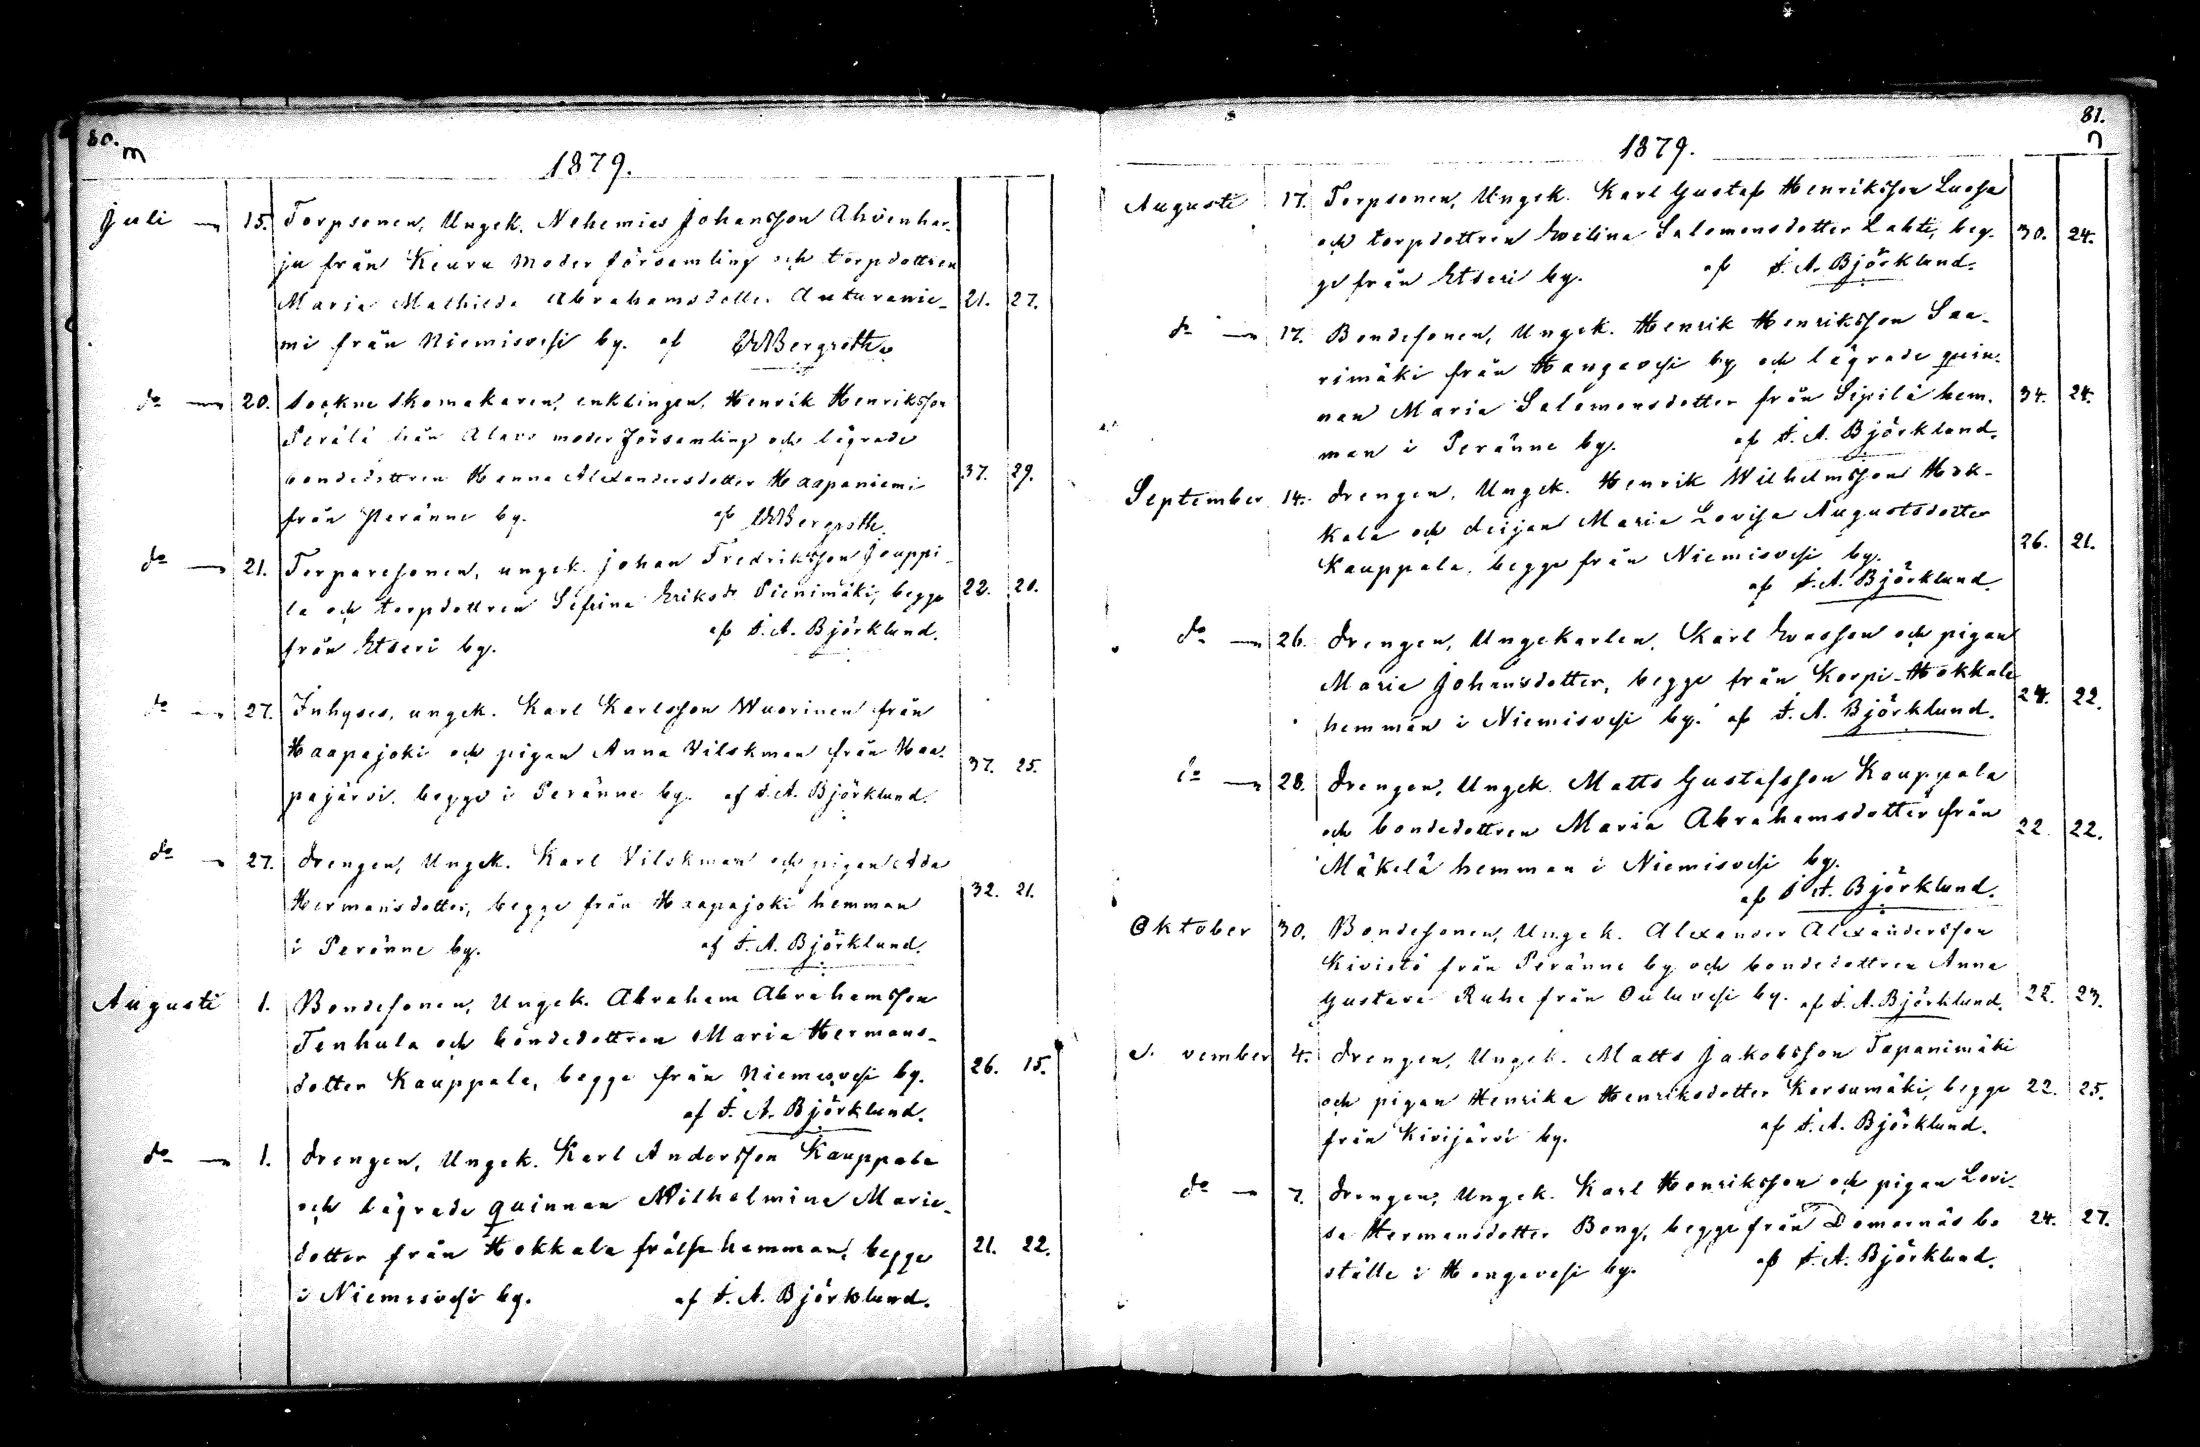 80.
1879.
Juli — 15. Torpsonen, Ungk. Nehemias Johansson Ahvenhar-
ju från Keuru moderförsamling och torpdottren
Maria Mathilda Abrahamsdotter Auturanie- 21. 27.
mi från Niemisvesi by. af Bergroth.
do — 20. Sockne skomakaren, enklingen, Henrik Henriksson
Perälä från Alavo moderförsamling och lägrade
bondedottren Hanna Alexandersdotter Haapaniemi 37. 29.
från Peränne by. af Bergroth.
do — 21. Torparesonen, ungk. Johan Fredriksson Jouppi-
la och torpdottren Sefina Eriksdr Pienimäki, begge 22. 20.
från Etseri by. af F. A. Björklund.
do — 27. Inhyses, ungk. Karl Karlsson Wuorinen från
Haapajoki och pigan Anna Vilskman från Haa-
pajärvi, begge i Peränne by. af F. A. Björklund. 37. 25.
do — 27. Drengen, Ungk. Karl Vilskman och pigan Ada
Hermansdotter, begge från Haapajoki hemman 32. 21.
i Peränne by. af F. A. Björklund.
Augusti 1. Bondesonen, Ungk. Abraham Abrahamsson
Tenhula och bondedottren Maria Hermans-
dotter Kauppala, begge från Niemisvesi by. 26. 15.
af F. A. Björklund.
do — 1. Drengen, Ungk. Karl Andersson Kauppala
och lägrade quinnan Wilhelmina Marie-
dotter från Hokkala frälse hemman, begge 21. 22.
i Niemisvesi by. af F. A. Björklund.
81.
1879.
Augusti 17. Torpsonen, Ungk. Karl Gustaf Henriksson Luoja
och torpdottren Evelina Salomonsdotter Lahti, beg- 30. 24.
ge från Etseri by. af F. A. Björklund.
do — 17. Bondesonen, Ungk. Henrik Henriksson Saa-
rimäki från Hangavesi by och lägrade quin-
nan Maria Salomonsdotter från Sipilä hem- 34. 24.
man i Peränne by. af F. A. Björklund.
September 14. Drengen, Ungk. Henrik Wilhelmsson Hok-
kala och deijan Maria Lovisa Augustsdotter
Kauppala, begge från Niemisvesi by. 26. 21.
af F. A. Björklund.
do — 26. Drengen, Ungkarlen, Karl Evasson och pigan
Maria Johansdotter, begge från Korpi-Hokkala
hemman i Niemisvesi by. af F. A. Björklund. 24. 22.
do — 28. Drengen, Ungk. Matts Gustafsson Kauppala
och bondedottren Maria Abrahamsdotter från 22. 22.
Mäkelä hemman i Niemisvesi by.
af F. A. Björklund.
Oktober 30. Bondesonen, Ungk. Alexander Alexandersson
Kivistö från Peränne by och bondedottren Anna
Gustava Ruha från Ouluvesi by. af F. A. Björklund. 22. 23.
vember 4. Drengen, Ungk. Matts Jakobsson Tapanimäki
och pigan Henrika Henriksdotter Korsumäki, begge 22. 25.
från Kivijärvi by. af F. A. Björklund.
do — 7. Drengen, Ungk. Karl Henriksson och pigan Lovi-
sa Hermansdotter Bong, begge från Domarnäs bo 24. 27.
ställe i Hangavesi by. af F. A. Björklund.